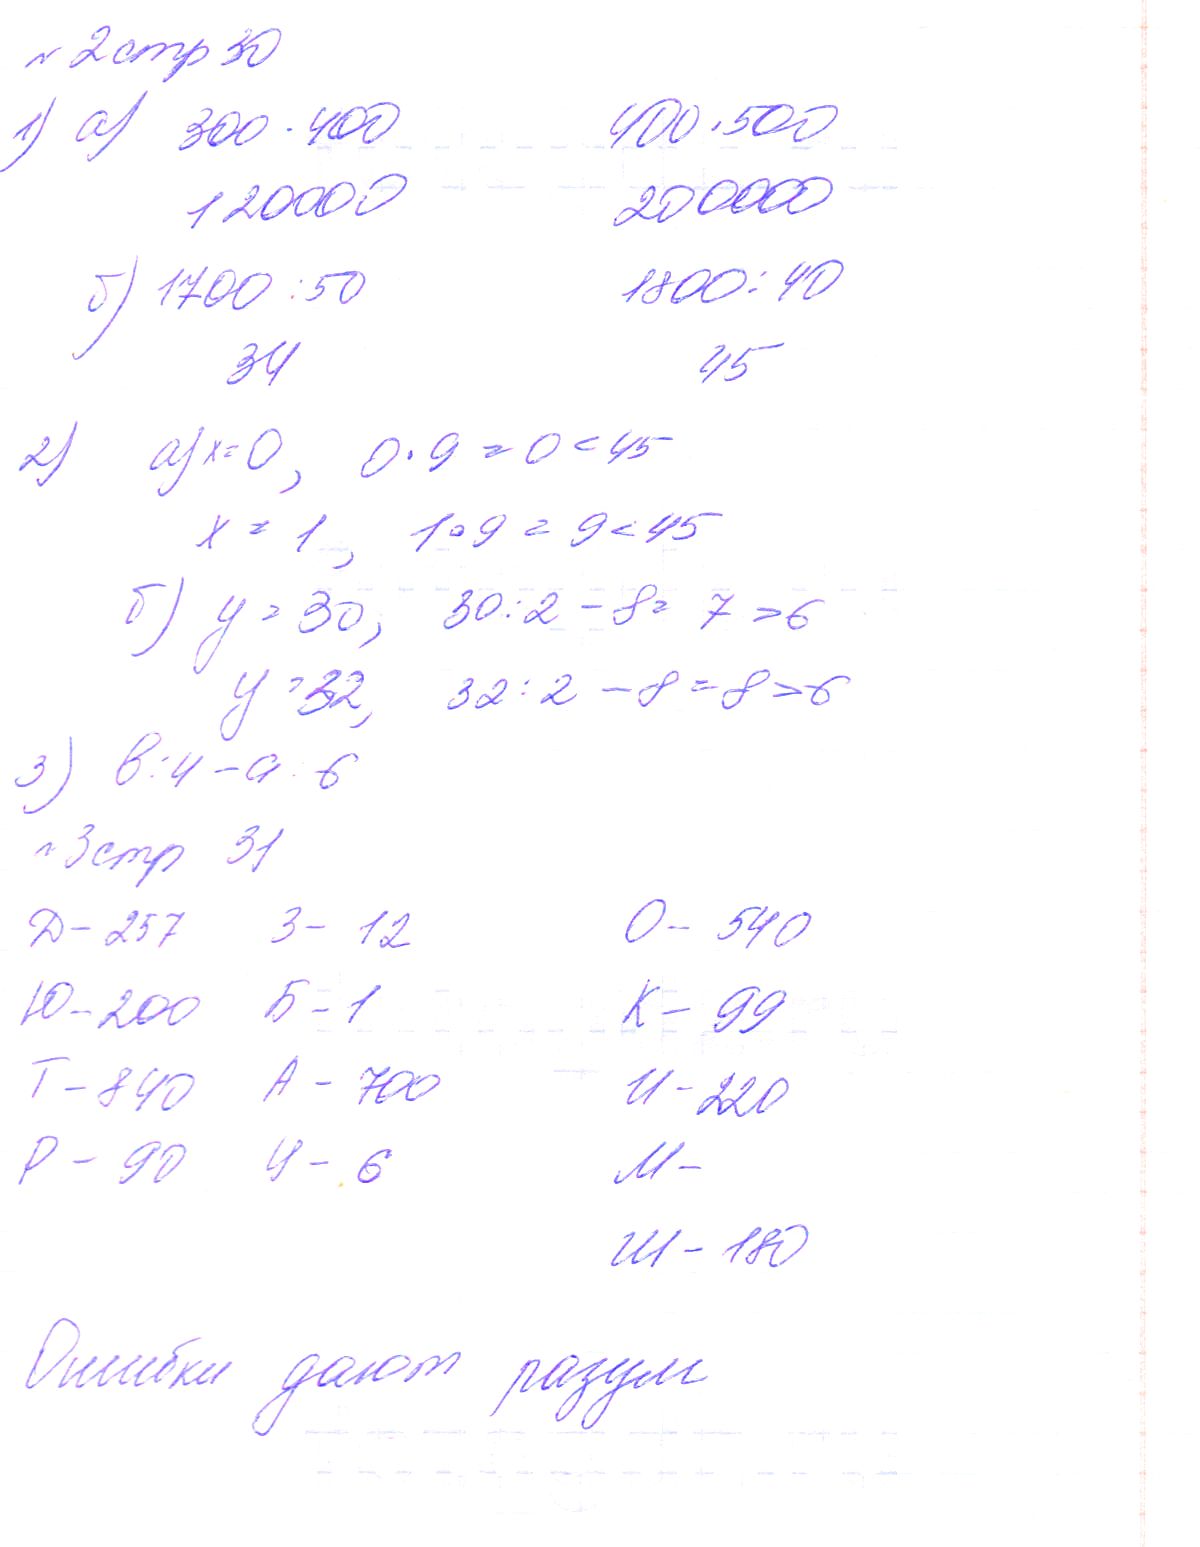 №2 стр 30
1) а) 300 · 400 400 · 500
120000 200000
б) 1700 : 50 1800 : 40
34 45
2) а) x=0, 0·9=0<45
x=1, 1·9=9<45
б) y=30, 30:2-8=7>6
y=32, 32:2-8=8>6
3) в:4-а:6
№3 стр 31
Д-257 З-12 О-540
Ю-200 Б-1 К-99
Т-840 А-700 И-220
Р-90 У-6 М-
Ш-180
Ошибки дают разум